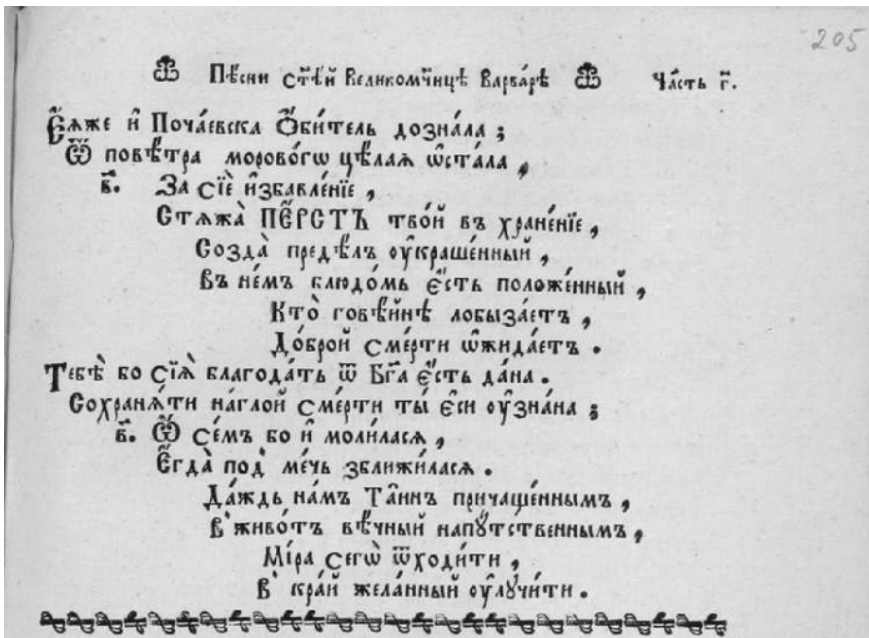 205
Пѣ́сни ст҃ѣ́й Великомч҃ницѣ Варва́рѣ Ча́сть г҃.
Є҆́ѧже и҆ Поча́евска Ѻ҆би́тель дозна́ла ;
Ѿ повѣ́тра морово́гѡ цѣ́лаѧ ѡ҆ста́ла ,
в҃. За сїѐ и҆збавле́нїе ,
Стѧжа̀ ПЕ́РСТЪ тво́й въ хране́нїе ,
Созда̀ предѣ́лъ ᲂу҆краше́нный ,
Въ не́мъ блюдо́мь є҆́сть положе́нный ,
Кто̀ говѣ́йнѣ лобыза́етъ ,
До́брой сме́рти ѡ҆жида́етъ .
Тебѣ̀ бо сїѧ̀ благода́ть ѿ Бг҃а є҆́сть да́на .
Сохранѧ́ти на́глой сме́рти ты̀ є҆сѝ ᲂу҆зна́на ;
в҃. Ѡ҆ се́мъ бо и҆ моли́ласѧ ,
Є҆гда̀ под̾ ме́чь зближи́ласѧ .
Да́ждь на́мъ Та̑инъ причаще́ннымъ ,
В̾ живо́тъ вѣ́чный напꙋ́тственнымъ ,
Мі́ра сегѡ̀ ѿходи́ти ,
В̾ кра́й жела́нный ᲂу҆лꙋчи́ти .